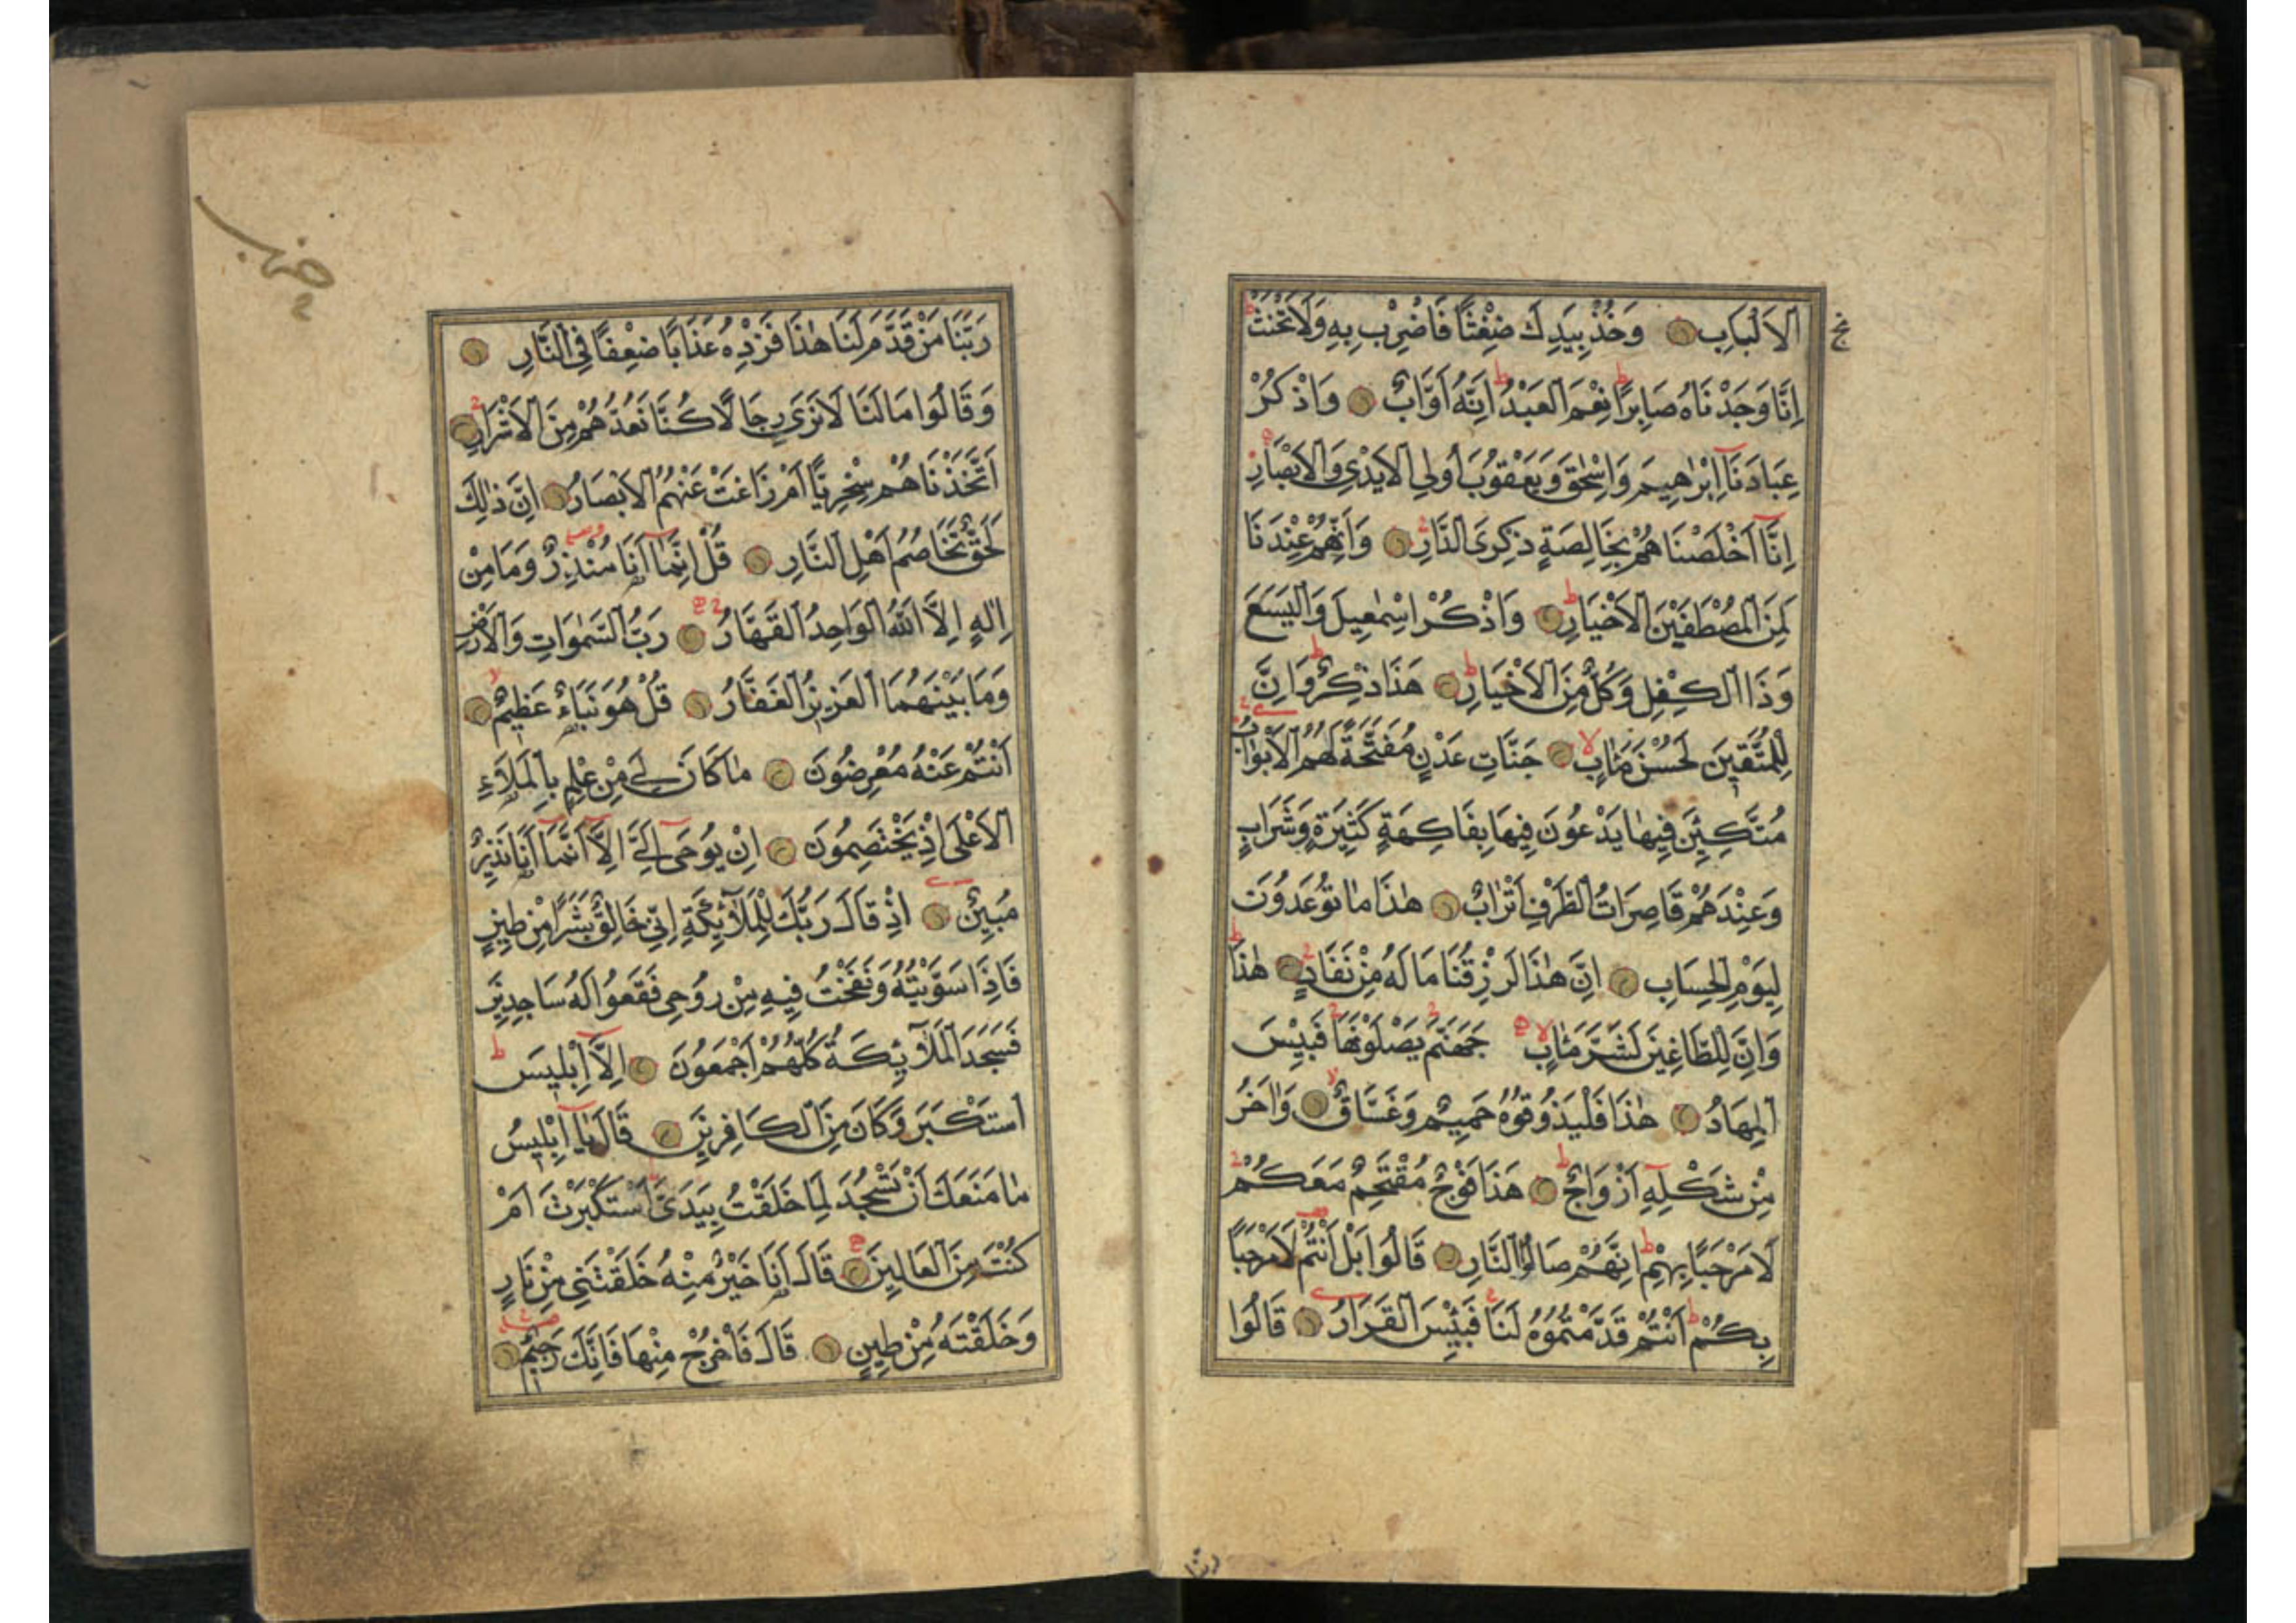 الْاَلْبَابِ وَخُذْ بِيَدِكَ ضِغْثًا فَاضْرِبْ بِهِ وَلَا تَحْنَثْ
اِنَّا وَجَدْنَاهُ صَابِرًا نِعْمَ الْعَبْدُ اِنَّهُ اَوَّابٌ وَاذْكُرْ
عِبَادَنَا اِبْرٰهِيمَ وَاِسْحٰقَ وَيَعْقُوبَ اُولِي الْاَيْدِي وَالْاَبْصَارِ
اِنَّا اَخْلَصْنَاهُمْ بِخَالِصَةٍ ذِكْرَى الدَّارِ وَاِنَّهُمْ عِنْدَنَا
لَمِنَ الْمُصْطَفَيْنَ الْاَخْيَارِ وَاذْكُرْ اِسْمٰعِيلَ وَالْيَسَعَ
وَذَا الْكِفْلِ وَكُلٌّ مِنَ الْاَخْيَارِ هٰذَا ذِكْرٌ وَاِنَّ
لِلْمُتَّقِينَ لَحُسْنَ مَاٰبٍ جَنَّاتِ عَدْنٍ مُفَتَّحَةً لَهُمُ الْاَبْوَابُ
مُتَّكِئِينَ فِيهَا يَدْعُونَ فِيهَا بِفَاكِهَةٍ كَثِيرَةٍ وَشَرَابٍ
وَعِنْدَهُمْ قَاصِرَاتُ الطَّرْفِ اَتْرَابٌ هٰذَا مَا تُوعَدُونَ
لِيَوْمِ الْحِسَابِ اِنَّ هٰذَا لَرِزْقُنَا مَا لَهُ مِنْ نَفَادٍ هٰذَا
وَاِنَّ لِلطَّاغِينَ لَشَرَّ مَاٰبٍ جَهَنَّمَ يَصْلَوْنَهَا فَبِئْسَ
الْمِهَادُ هٰذَا فَلْيَذُوقُوهُ حَمِيمٌ وَغَسَّاقٌ وَاٰخَرُ
مِنْ شَكْلِهِ اَزْوَاجٌ هٰذَا فَوْجٌ مُقْتَحِمٌ مَعَكُمْ
لَا مَرْحَبًا بِهِمْ اِنَّهُمْ صَالُوا النَّارِ قَالُوا بَلْ اَنْتُمْ لَا مَرْحَبًا
بِكُمْ اَنْتُمْ قَدَّمْتُمُوهُ لَنَا فَبِئْسَ الْقَرَارُ قَالُوا
ربنا
رَبَّنَا مَنْ قَدَّمَ لَنَا هٰذَا فَزِدْهُ عَذَابًا ضِعْفًا فِي النَّارِ
وَقَالُوا مَا لَنَا لَا نَرٰى رِجَالًا كُنَّا نَعُدُّهُمْ مِنَ الْاَشْرَارِ
اَتَّخَذْنَاهُمْ سِخْرِيًّا اَمْ زَاغَتْ عَنْهُمُ الْاَبْصَارُ اِنَّ ذٰلِكَ
لَحَقٌّ تَخَاصُمُ اَهْلِ النَّارِ قُلْ اِنَّمَا اَنَا مُنْذِرٌ وَمَا مِنْ
اِلٰهٍ اِلَّا اللّٰهُ الْوَاحِدُ الْقَهَّارُ رَبُّ السَّمٰوَاتِ وَالْاَرْضِ
وَمَا بَيْنَهُمَا الْعَزِيزُ الْغَفَّارُ قُلْ هُوَ نَبَاءٌ عَظِيمٌ
اَنْتُمْ عَنْهُ مُعْرِضُونَ مَا كَانَ لِيَ مِنْ عِلْمٍ بِالْمَلَاءِ
الْاَعْلٰى اِذْ يَخْتَصِمُونَ اِنْ يُوحٰى اِلَيَّ اِلَّا اَنَّمَا اَنَا نَذِيرٌ
مُبِينٌ اِذْ قَالَ رَبُّكَ لِلْمَلَائِكَةِ اِنِّي خَالِقٌ بَشَرًا مِنْ طِينٍ
فَاِذَا سَوَّيْتُهُ وَنَفَخْتُ فِيهِ مِنْ رُوحِي فَقَعُوا لَهُ سَاجِدِينَ
فَسَجَدَ الْمَلَائِكَةُ كُلُّهُمْ اَجْمَعُونَ اِلَّا اِبْلِيسَ
اسْتَكْبَرَ وَكَانَ مِنَ الْكَافِرِينَ قَالَ يَا اِبْلِيسُ
مَا مَنَعَكَ اَنْ تَسْجُدَ لِمَا خَلَقْتُ بِيَدَيَّ اَسْتَكْبَرْتَ اَمْ
كُنْتَ مِنَ الْعَالِينَ قَالَ اَنَا خَيْرٌ مِنْهُ خَلَقْتَنِي مِنْ نَارٍ
وَخَلَقْتَهُ مِنْ طِينٍ قَالَ فَاخْرُجْ مِنْهَا فَاِنَّكَ رَجِيمٌ